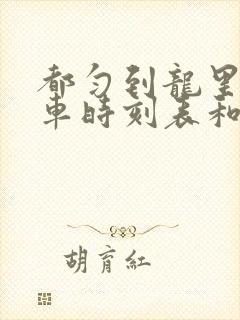 都匀到龍里
車時刻表和
胡育紅